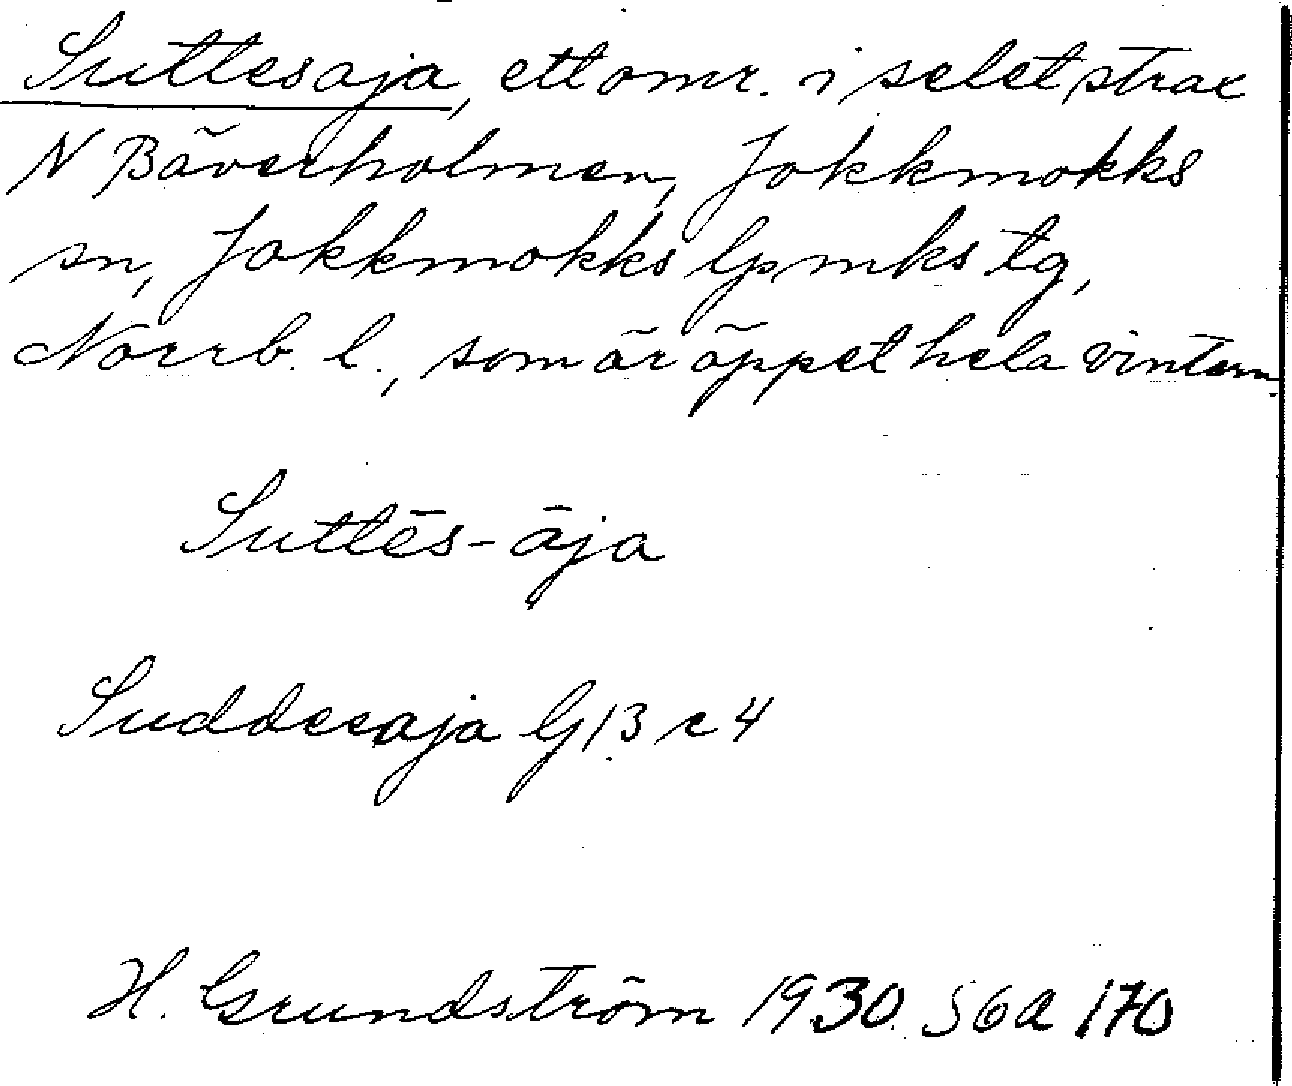 Suttesaja, ett omr. i selet strax
N Bäverholmen, Jokkmokks
sn, Jokkmokks lpmks tg,
Norrb. l., som är öppet hela vintern.
Suttēs-āja
Suddesaja G 13 c 4
H. Grundström 1930. S6a 170